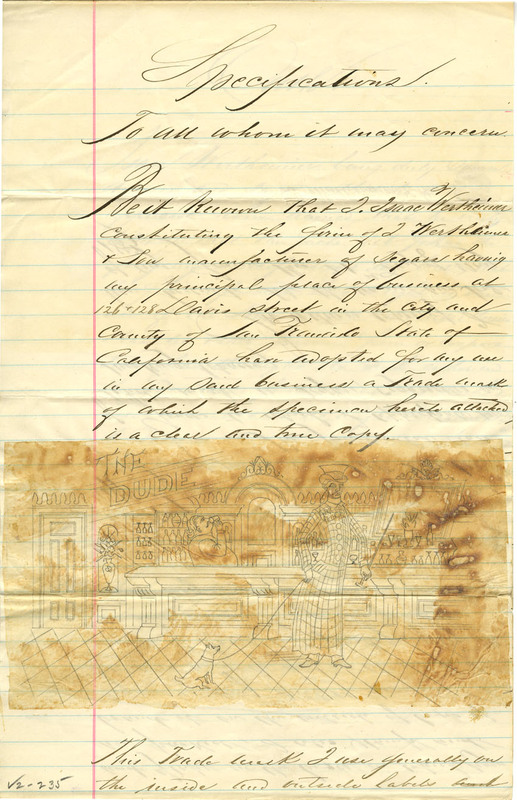 Specifications.
To all whom it may concern.
Be it Known that I. Isaac Wertheimer
Constituting the firm of I Wertheimer
& Son manufacturer of Segars having
my principal place of business at
126 & 128 Davis street in the city and
County of San Francisco State of
California have adopted for my use
in my said business a Trade mark
of which the specimen hereto attached
is a clear and true Copy.
THE
DUDE
This Trade mark I use generally on
the inside and outside labels
V2-235